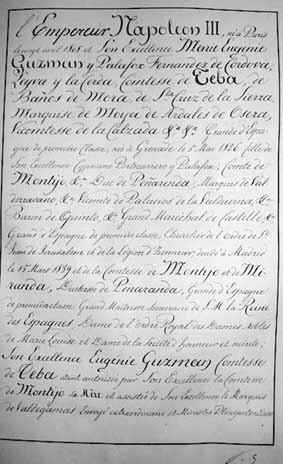 l'Empereur Napoléon III, né à Paris
le vingt avril 1808 et Son Excellence Marie Eugenie
Guzman y Palafox Fernandez de Cordova,
Leyva y la Cerda, Comtesse de Teba, de
Baños de Mora, de Sta Cruz de la Sierra,
Marquise de Moya, de Ardales, de Osera,
Vicomtesse de la Calzada &a &a Grande d'Espa-
gne de première classe, née à Grenade le 5 Mai 1826 fille de
Son Excellence Cypriano Portocarrero y Palafox, Comte de
Montijo, &a Duc de Peñaranda, Marquis de Val
derravano, &a Vicomte de Palacios de la Valduerna, &a
Baron de Quinto, &a Grand Maréchal de Castille, &a
Grand d'Espagne de première classe, Chevalier de l'ordre de St
Jean de Jerusalem et de la Légion d'honneur, décédé à Madrid
le 15 Mars 1839 et de la Comtesse de Montijo et de Mi-
randa, Duchesse de Peñaranda, Grande d'Espagne
de première classe Grand Maitresse honoraire de S. M. la Reine
des Espagnes Dame de l'ordre Royal des Dames nobles
de Marie Louise et Dame de la Société d'honneur et mérite,
Son Excellence Eugenie Guzman Comtesse
de Teba étant autorisée par Son Excellence la Comtesse
de Montijo sa Mère et assistée de Son Excellence le Marquis
de Valdegamas Envoyé extraordinaire et Ministre Plénipotentiaire